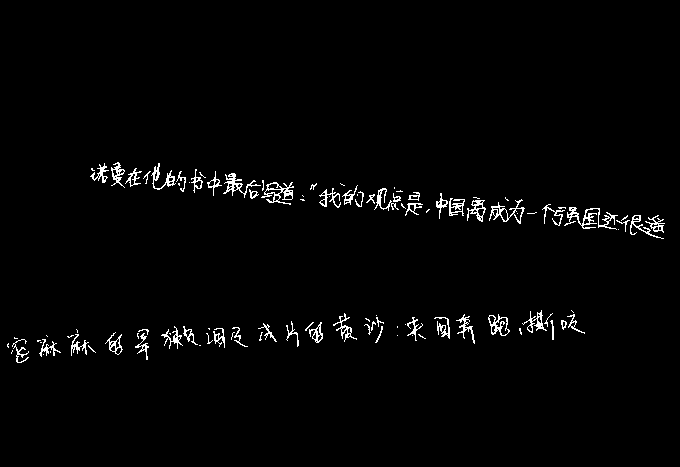 诺曼在他的书中最后写道:“我的观点是,中国离成为一个强国还很遥
密麻麻的旱獭洞及成片的黄沙;来回奔跑、撕咬